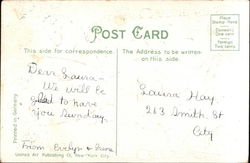 POST CARD
Place
Stamp Here
Domestic
One cent
Foreign
Two cents
This side for correspondence.
The Address to be written
on this side
Dear Laura-
We will be
glad to have
you Sunday.
From Evelyn &
Laura Hay.
263 Smith St
City
Printed in Germany
United Art Publishing Co., New York City.